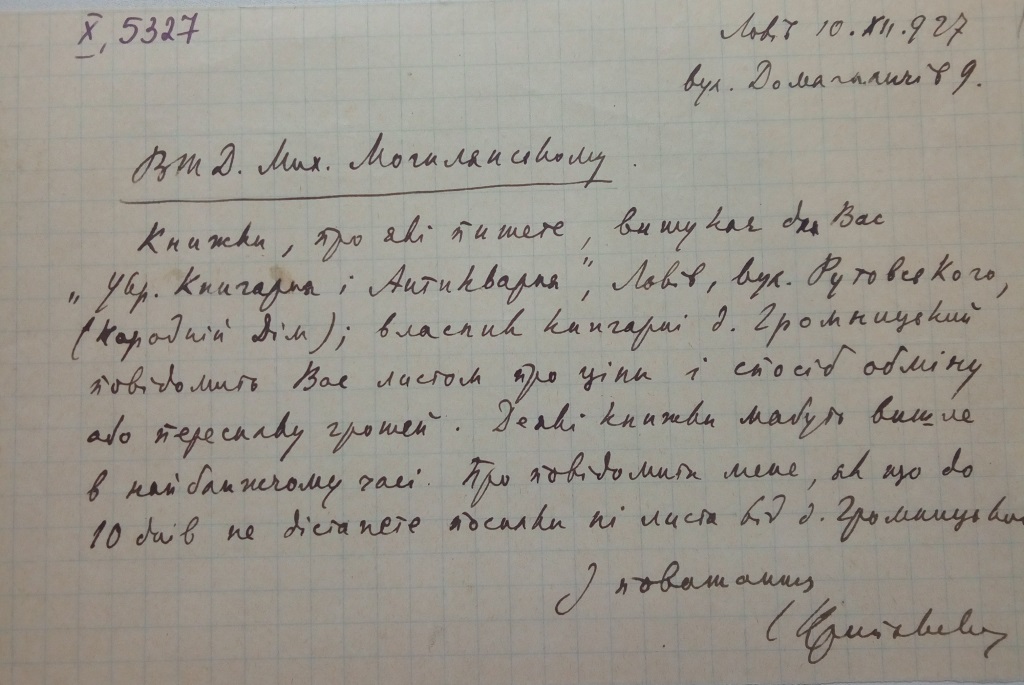 X, 5327
Львів 10.XII.927
вул. Домагаличів 9.
ВШ Д. Мих. Могилянському.
Книжки, про які пишете, вишукає для Вас
„Укр. Книгарня і Антикварня", Львів, вул. Рутовського,
(Народній Дім); власник книгарні д. Громницький
повідомить Вас листом про ціни і спосіб обміну
або пересилку грошей. Деякі книжки мабуть вишле
в найближчому часі. Про повідомити мене, як що до
10 днів не дістанете посилки ні листа від д. Громницько
З поважанням